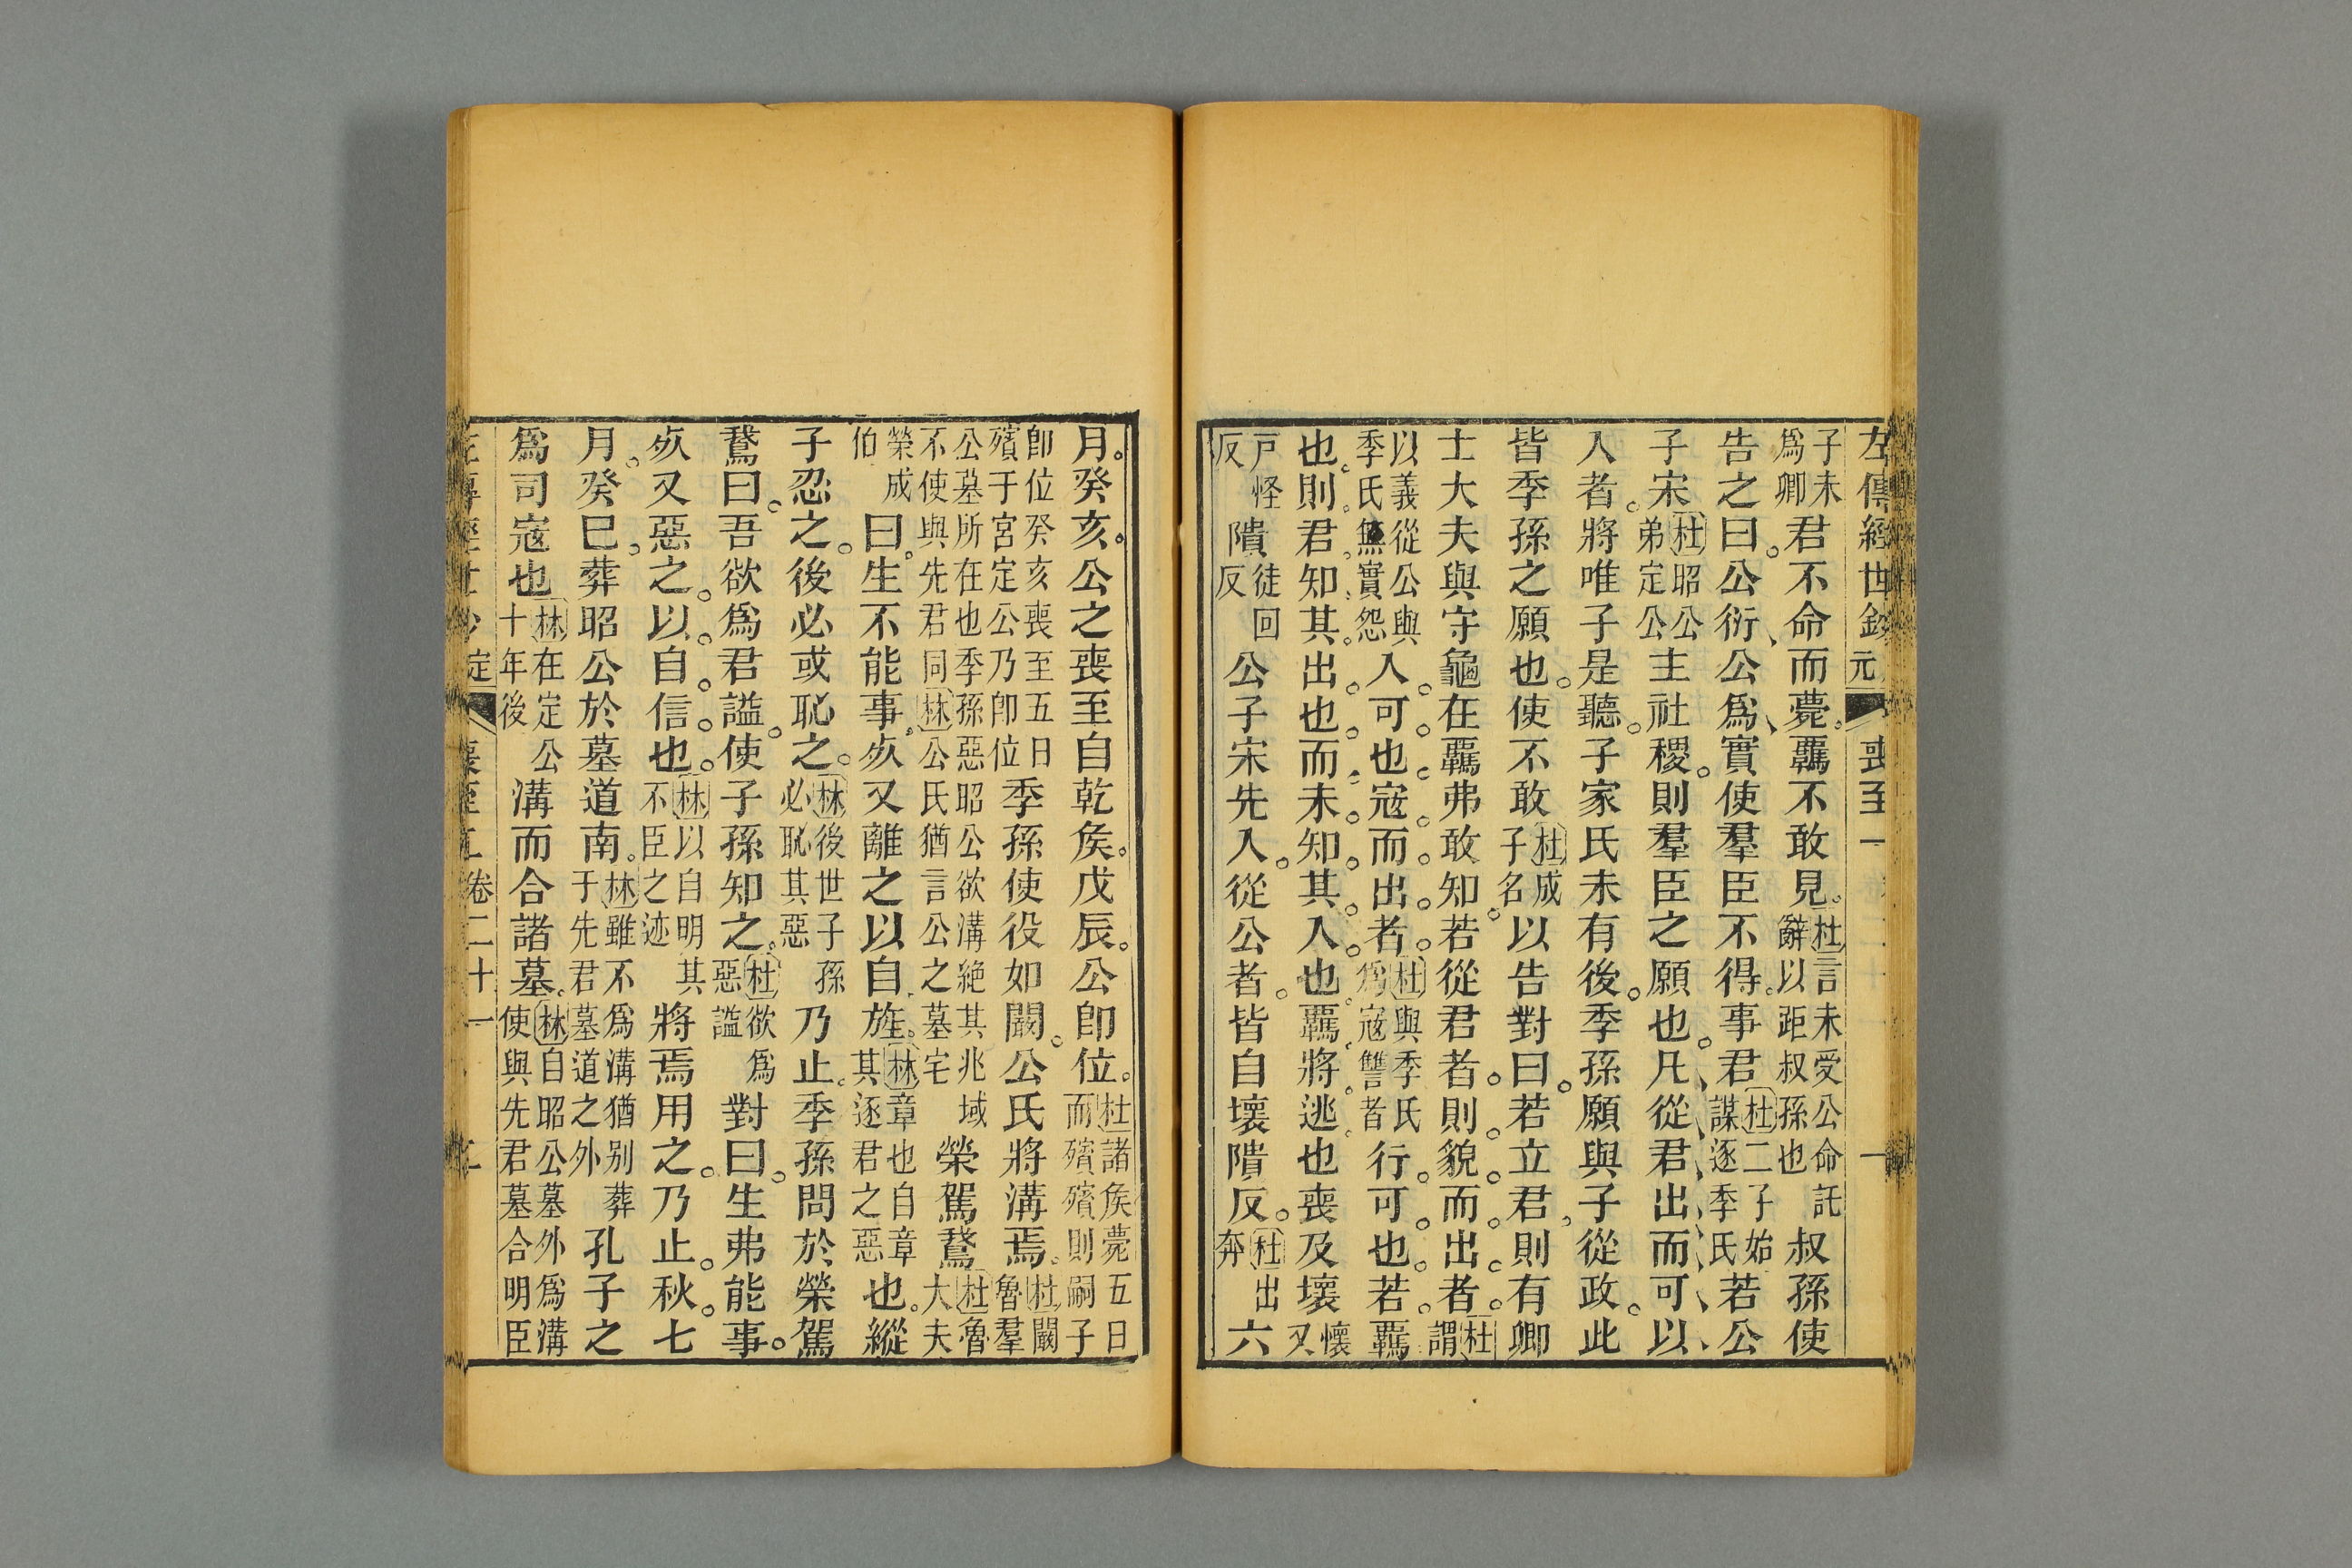 左傳經世鈔 元 喪至 一
子未為卿君不命而薨羈不敢見杜言未受公命託辭以距叔孫也叔孫使
告之曰公衍公為實使羣臣不得事君杜二子始謀逐季氏若公
子宋杜昭公弟定公主社稷則羣臣之願也凡從君出而可以
入者將唯子是聽子家氏未有後季孫願與子從政此
皆季孫之願也使不敢杜成子名以告對曰若立君則有卿
士大夫與守龜在羈弗敢知若從君者則貌而出者杜謂
以義從公與季氏無實怨入可也寇而出者杜與季氏為寇讐者行可也若羈
也則君知其出也而未知其入也羈將逃也喪及壞懷又
戸怪反隤徒回反公子宋先入從公者皆自壞隤反杜出奔六
月癸亥公之喪至自乾矦戊辰公卽位杜諸矦薨五日而殯殯則嗣子
卽位癸亥喪至五日殯于宮定公乃卽位季孫使役如闞公氏將溝焉杜闞魯羣
公墓所在也季孫惡昭公欲溝絕其兆域不使與先君同林公氏猶言公之墓宅榮駕鵞杜魯大夫
榮成伯曰生不能事死又離之以自旌林章也自章其逐君之惡也縱
子忍之後必或恥之林後世子孫必恥其惡乃止季孫問於榮駕
鵞曰吾欲為君諡使子孫知之杜欲為惡諡對曰生弗能事
死又惡之以自信也林以自明其不臣之迹將焉用之乃止秋七
月癸巳葬昭公於墓道南林雖不為溝猶別葬于先君墓道之外孔子之
為司寇也林在定公十年後溝而合諸墓林自昭公墓外為溝使與先君墓合明臣
定 喪至 卷二十一 二